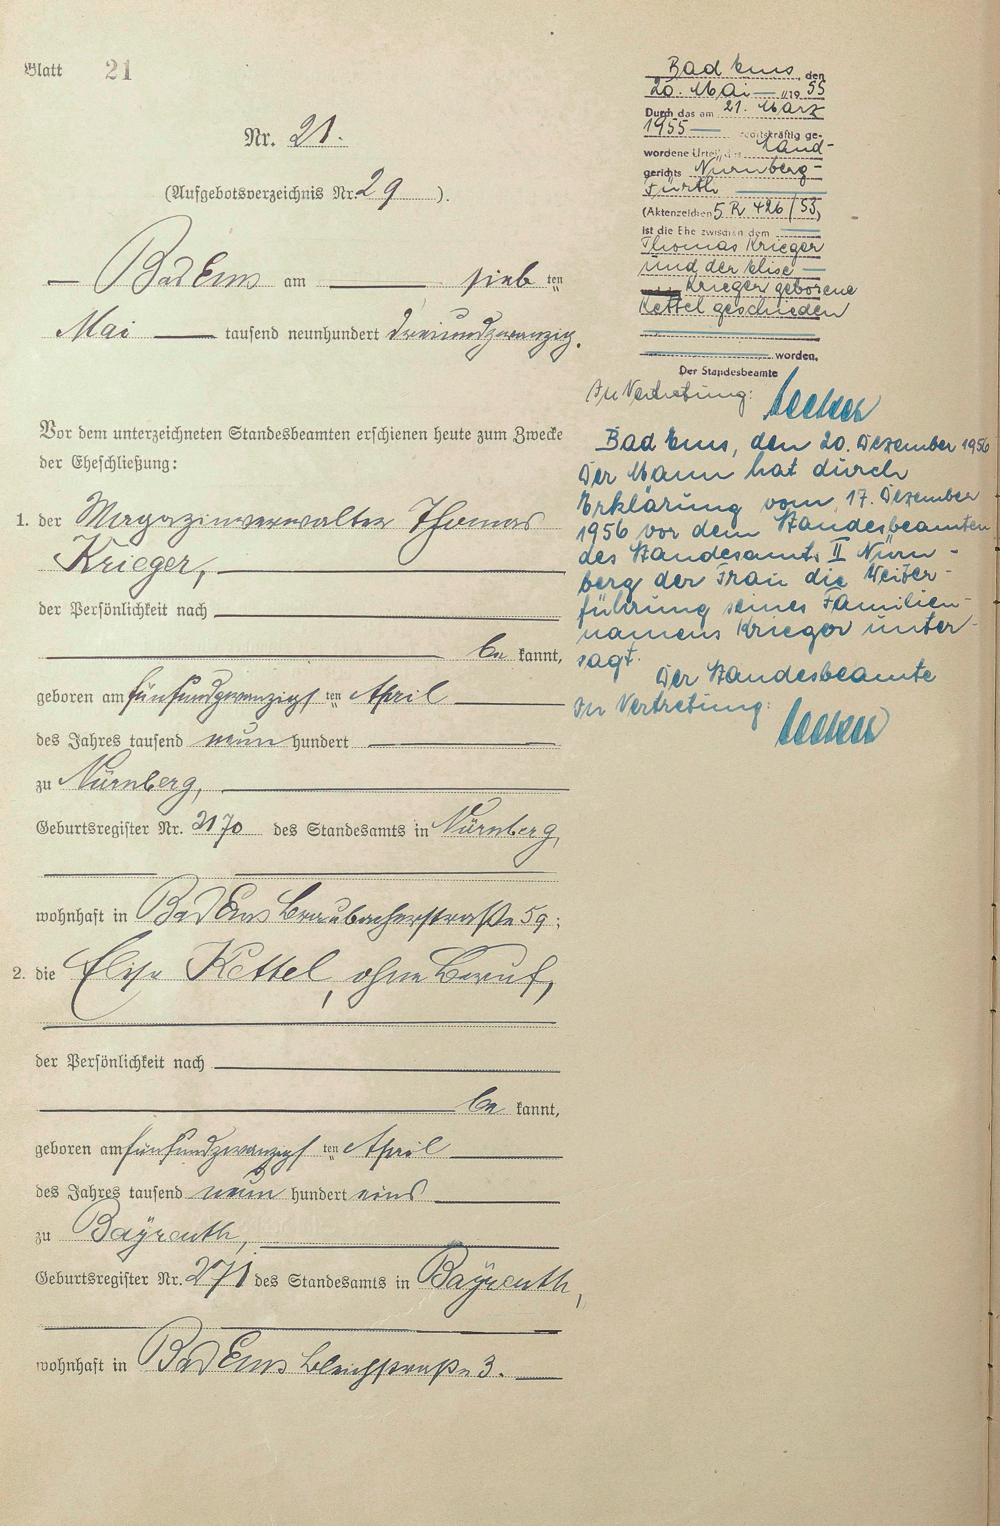 Blatt 21
Nr. 21.
(Aufgebotsverzeichnis Nr. 29).
Bad Ems am sieb ten
Mai tausend neunhundert dreiundzwanzig.
Vor dem unterzeichneten Standesbeamten erschienen heute zum Zwecke
der Eheschließung:
1. der Magazinverwalter Thomas
Krieger,
der Persönlichkeit nach
be kannt,
geboren am fünfundzwanzigs ten April
des Jahres tausend neun hundert
zu Nürnberg,
Geburtsregister Nr. 2170 des Standesamts in Nürnberg,
wohnhaft in Bad Ems Braubacherstraße 59;
2. die Elise Kettel, ohne Beruf,
der Persönlichkeit nach
be kannt,
geboren am fünfundzwanzigs ten April
des Jahres tausend neun hundert eins
zu Bayreuth,
Geburtsregister Nr. 271 des Standesamts in Bayreuth,
wohnhaft in Bad Ems Bleichstraße 3.
Bad Ems, den
20. Mai 1955
Durch das am 21. März
1955 rechtskräftig ge-
wordene Urteil des Land-
gerichts Nürnberg-
Fürth
(Aktenzeichen 5 R 426/53)
ist die Ehe zwischen dem
Thomas Krieger
und der Elise
Krieger geborene
Kettel geschieden
worden.
Der Standesbeamte
In Vertretung:
Bad Ems, den 20. Dezember 1956
Der Mann hat durch
Erklärung vom 17. Dezember
1956 vor dem Standesbeamten
des Standesamts II Nürn-
berg der Frau die Weiter-
führung seines Familien-
namens Krieger unter-
sagt.
Der Standesbeamte
In Vertretung: